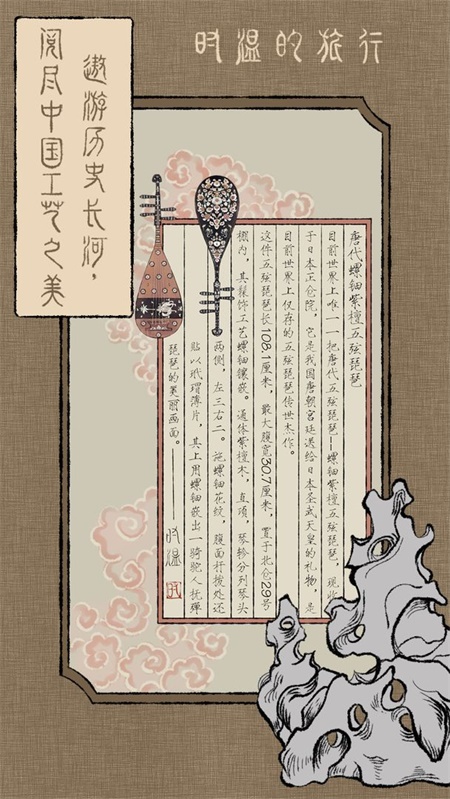 时温的旅行
遨游历史长河，
阅尽中国工艺之美
唐代螺钿紫檀五弦琵琶
目前世界上唯一一把唐代五弦琵琶—螺钿紫檀五弦琵琶，现收
于日本正仓院，它是我国唐朝宫廷送给日本圣武天皇的礼物，是
目前世界上仅存的五弦琵琶传世杰作。
这件五弦琵琶长108.1厘米，最大腹宽30.7厘米，置于北仓29号
棚内，其装饰工艺螺钿镶嵌。通体紫檀木，直项，琴轸分列琴头
两侧，左三右二。施螺钿花纹，腹面杆拨处还
贴以玳瑁薄片，其上用螺钿嵌出一骑驼人抚弹
琵琶的美丽画面。——时温